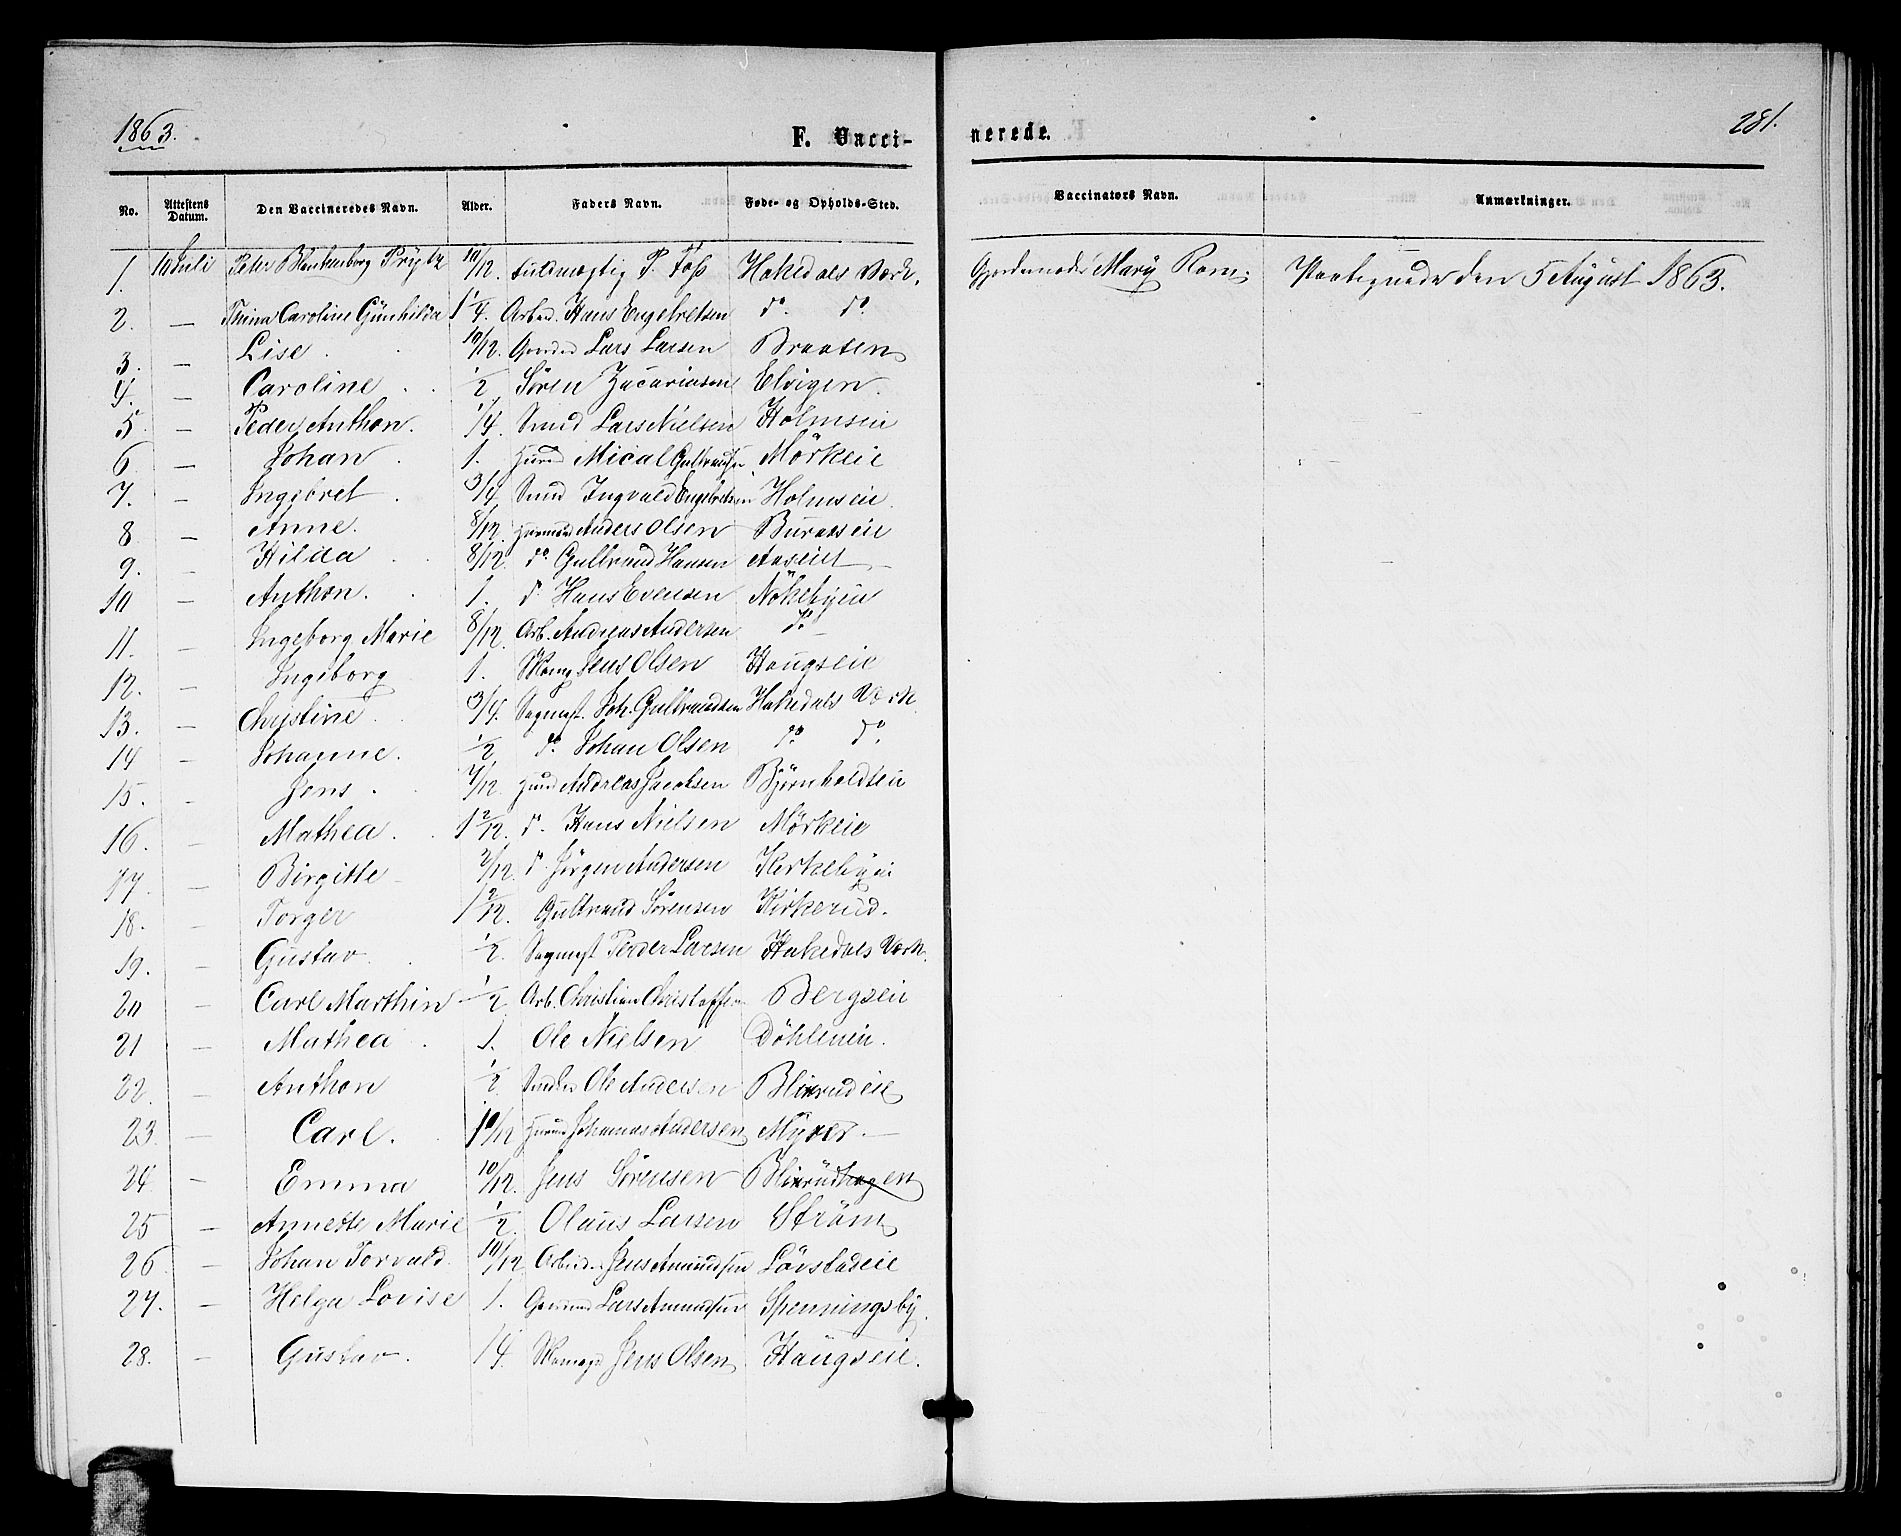 1863.
F. Vacci-
nerede.
281.
No. Attestens Datum. Den Vaccineredes Navn. Alder. Faders Navn. Føde- og Opholds-Sted. Vaccinators Navn. Anmærkninger.
1. 10 Juli Peter Blankenborg Prÿtz 10/12. Fuldmægtig P. Hakedals Værk. Gjordemoder Marÿ Rom. Protegnede den 5 August 1863.
2. — Caroline Günhilda 1 1/4. Arbed. Hans Engebretsen do. do.
3. — Lise. 10/12. Gaardm Lars Larsen Braaten
4. — Caroline. 1/2 Sören Zacariasen Elvigen.
5. — Peder Anthon. 1/4. Smed Lars Nielsen Holmseie
6. — Johan. 1. Huusm Mical Gulbransen Mörkeie
7. — Ingebret. 3/4 Smed Ingvald Engebretsen Holmseie
8. — Anne. 8/12. Huusmd Anders Olsen Buraaseie
9. — Hilda 8/12. do. Gulbrand Hansen Aaseiet
10 — Anthon. 1. do Hans Evensen Nökebÿeie
11. — Ingeborg Marie 8/12. Arb. Andreas Andersen do.
12. — Ingeborg 1. Skomg Jens Olsen Haugseie
13. — Christine. 3/4. Sagmst. Joh. Gulbrandsen Hakedals Værk
14 — Johanne. 1/2 do. Johan Olsen do. do.
15. — Jens. 7/12. Huusm Andreas Jacobsen Bjørnholdteie
16. — Mathea. 1 2/12. do. Hans Nielsen Mörkeie
17. — Birgitte 7/12. do Jörgen Andersen Kirkebÿeie
18. — Torger 1 2/12. Gulbrand Sörensen Kirkerud.
19. — Gustav. 1/2. Sagmst Peder Larsen Hakedals Værk.
20 — Carl Marthin 1/2 Arb. Christian Christoffersen Bergseie
21 — Mathea 1. Ole Nielsen Döhleneie.
22. — Anthon 1/2 Smeder Ole Andersen Blixrudeie
23. — Carl. 10/12 Huusm Johannes Andersen Mÿrer.
24 — Emma 10/12. Jens Sörensen Blixrüdhagen
25 — Annette Marie 1/2. Olaus Larsen Ström
26. — Johan Torvald. 10/12 Arbeider Jens Amundsen Lövstadeie
27. — Helga Lovise 1. Gaardm Lars Amundsen Spenningsbÿ.
28. — Gustav. 1/4. Skomagr Jens Olsen Haugseie.